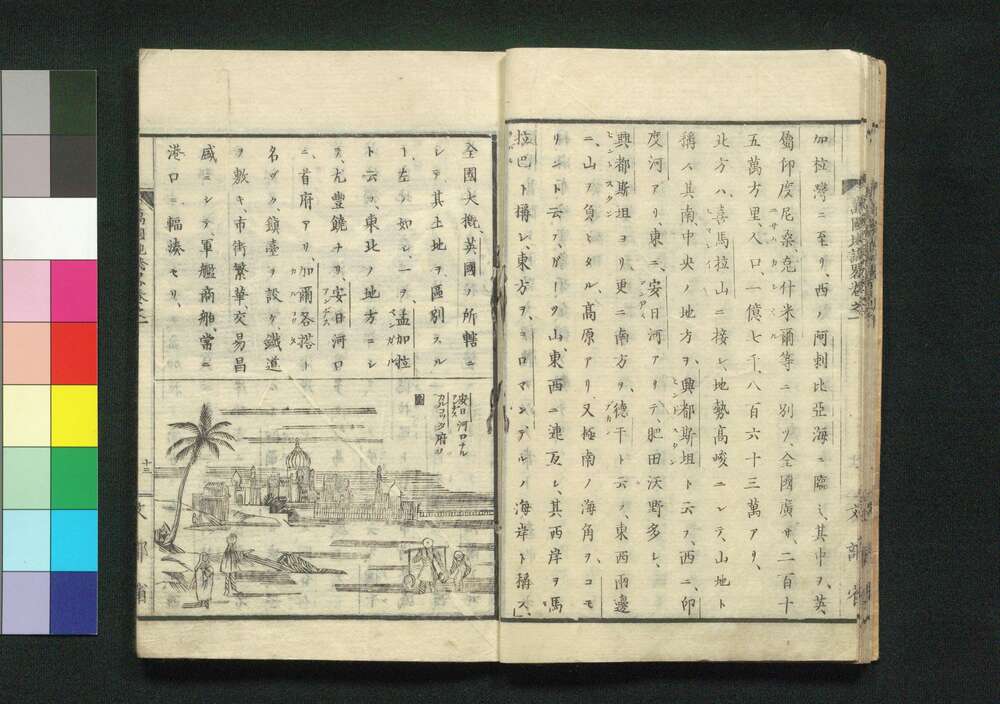 加拉灣ニ至リ、西ノ阿剌比亞海ニ臨ミ、其中ヲ、英
屬印度尼桑、克什米爾等ニ別ツ、全國廣サ、二百十
五萬方里、人口、一億七千、八百六十三萬アリ、
北方ハ、喜馬拉山ニ接シ、地勢高峻ニシテ、山地ト
稱ス其南中央ノ地方ヲ、興都斯坦ト云フ、西ニ、印
度河アリ、東ニ、安日河アリテ、肥田沃野多シ、
興都斯坦ヨリ、更ニ南方ヲ、德干ト云フ、東西兩邊
ニ、山ヲ負ヒタル、高原アリ、又極南ノ海角ヲ、コモ
リント云フ、ゲーツ山、東西ニ連亙シ、其西岸ヲ馬
拉巴ト搆シ、東方ヲ、コロマンデルノ海岸ト搆ス、
全國大概、英國ノ所轄ニ
シテ其土地ヲ區別スル
ー、左ノ如シ、一ヲ、孟加拉
ト云フ、東北ノ地方ニシ
テ、尤豐饒ナリ、安日河口
ニ、首府アリ、加爾各搭ト
名ヅク、鎮臺ヲ設ケ、鐵道
ヲ敷キ、市街繁華、交易昌
盛ニシテ、軍艦商舶、常ニ
港口ニ輻湊セリ、
安日河口ナル
カルコッタ府ノ
圖
十三
文部省